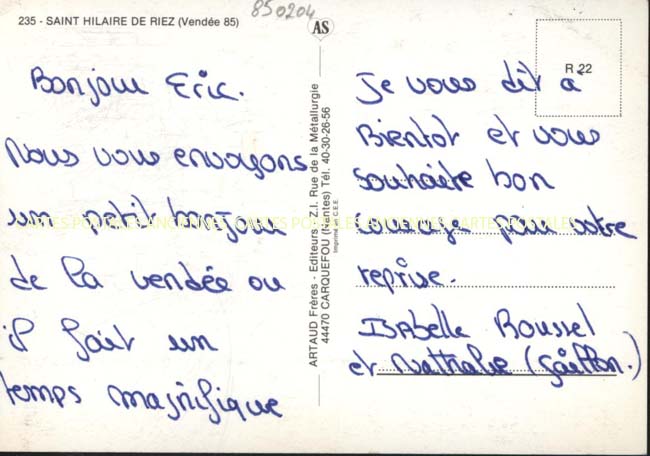 235 - SAINT HILAIRE DE RIEZ (Vendée 85)
850204
AS
R 22
Bonjour Eric.
Nous vous envoyons
un petit bonjour
de la vendée ou
il fait un
temps magnifique
ARTAUD Frères - Editeurs - Z.I. Rue de la Métallurgie
44470 CARQUEFOU (Nantes) Tél. 40-30-26-56
Imprimé en C.E.E.
Je vous dit à
Bientot et vous
souhaite bon
courage pour votre
reprise.
ISABELLE Roussel
et Nathalie (Gaillon.)
CARTES POSTALES ANCIENNES CARTES POSTALES ANCIENNES CARTES POSTALES